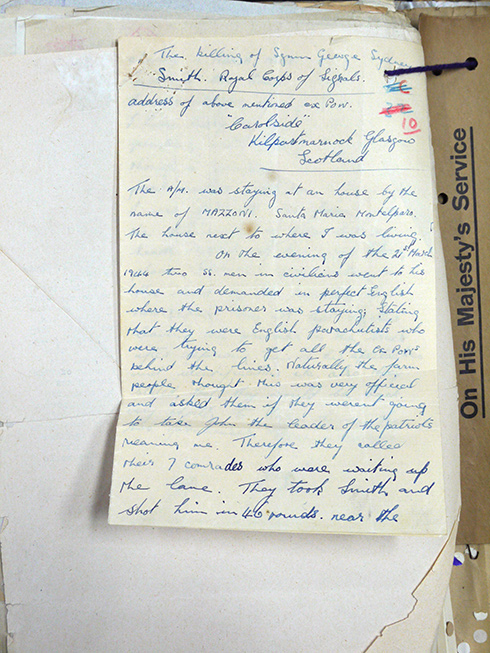 The killing of Sgmn George Sydney
Smith. Royal Corps of Signals.
address of above mentioned ex Pow.
"Carolside"
Kilpatmarnock Glasgow
Scotland
10
The A/M. was staying at an house by the
name of MAZZONI. Santa Maria Montelparo.
The house next to where I was living.
On the evening of the 21st March
1944 two SS. men in civilians went to his
house and demanded in perfect English
where the prisoner was staying; Stating
that they were English parachutists who
were trying to get all the Ex Pows
behind the lines. Naturally the farm
people thought this was very
and asked them if they werent going
to take John the leader of the patriots
meaning me. Therefore they called
their 7 comrades who were waiting up
the lane. They took Smith and
shot him in 40 rounds. near the
On His Majesty's Service